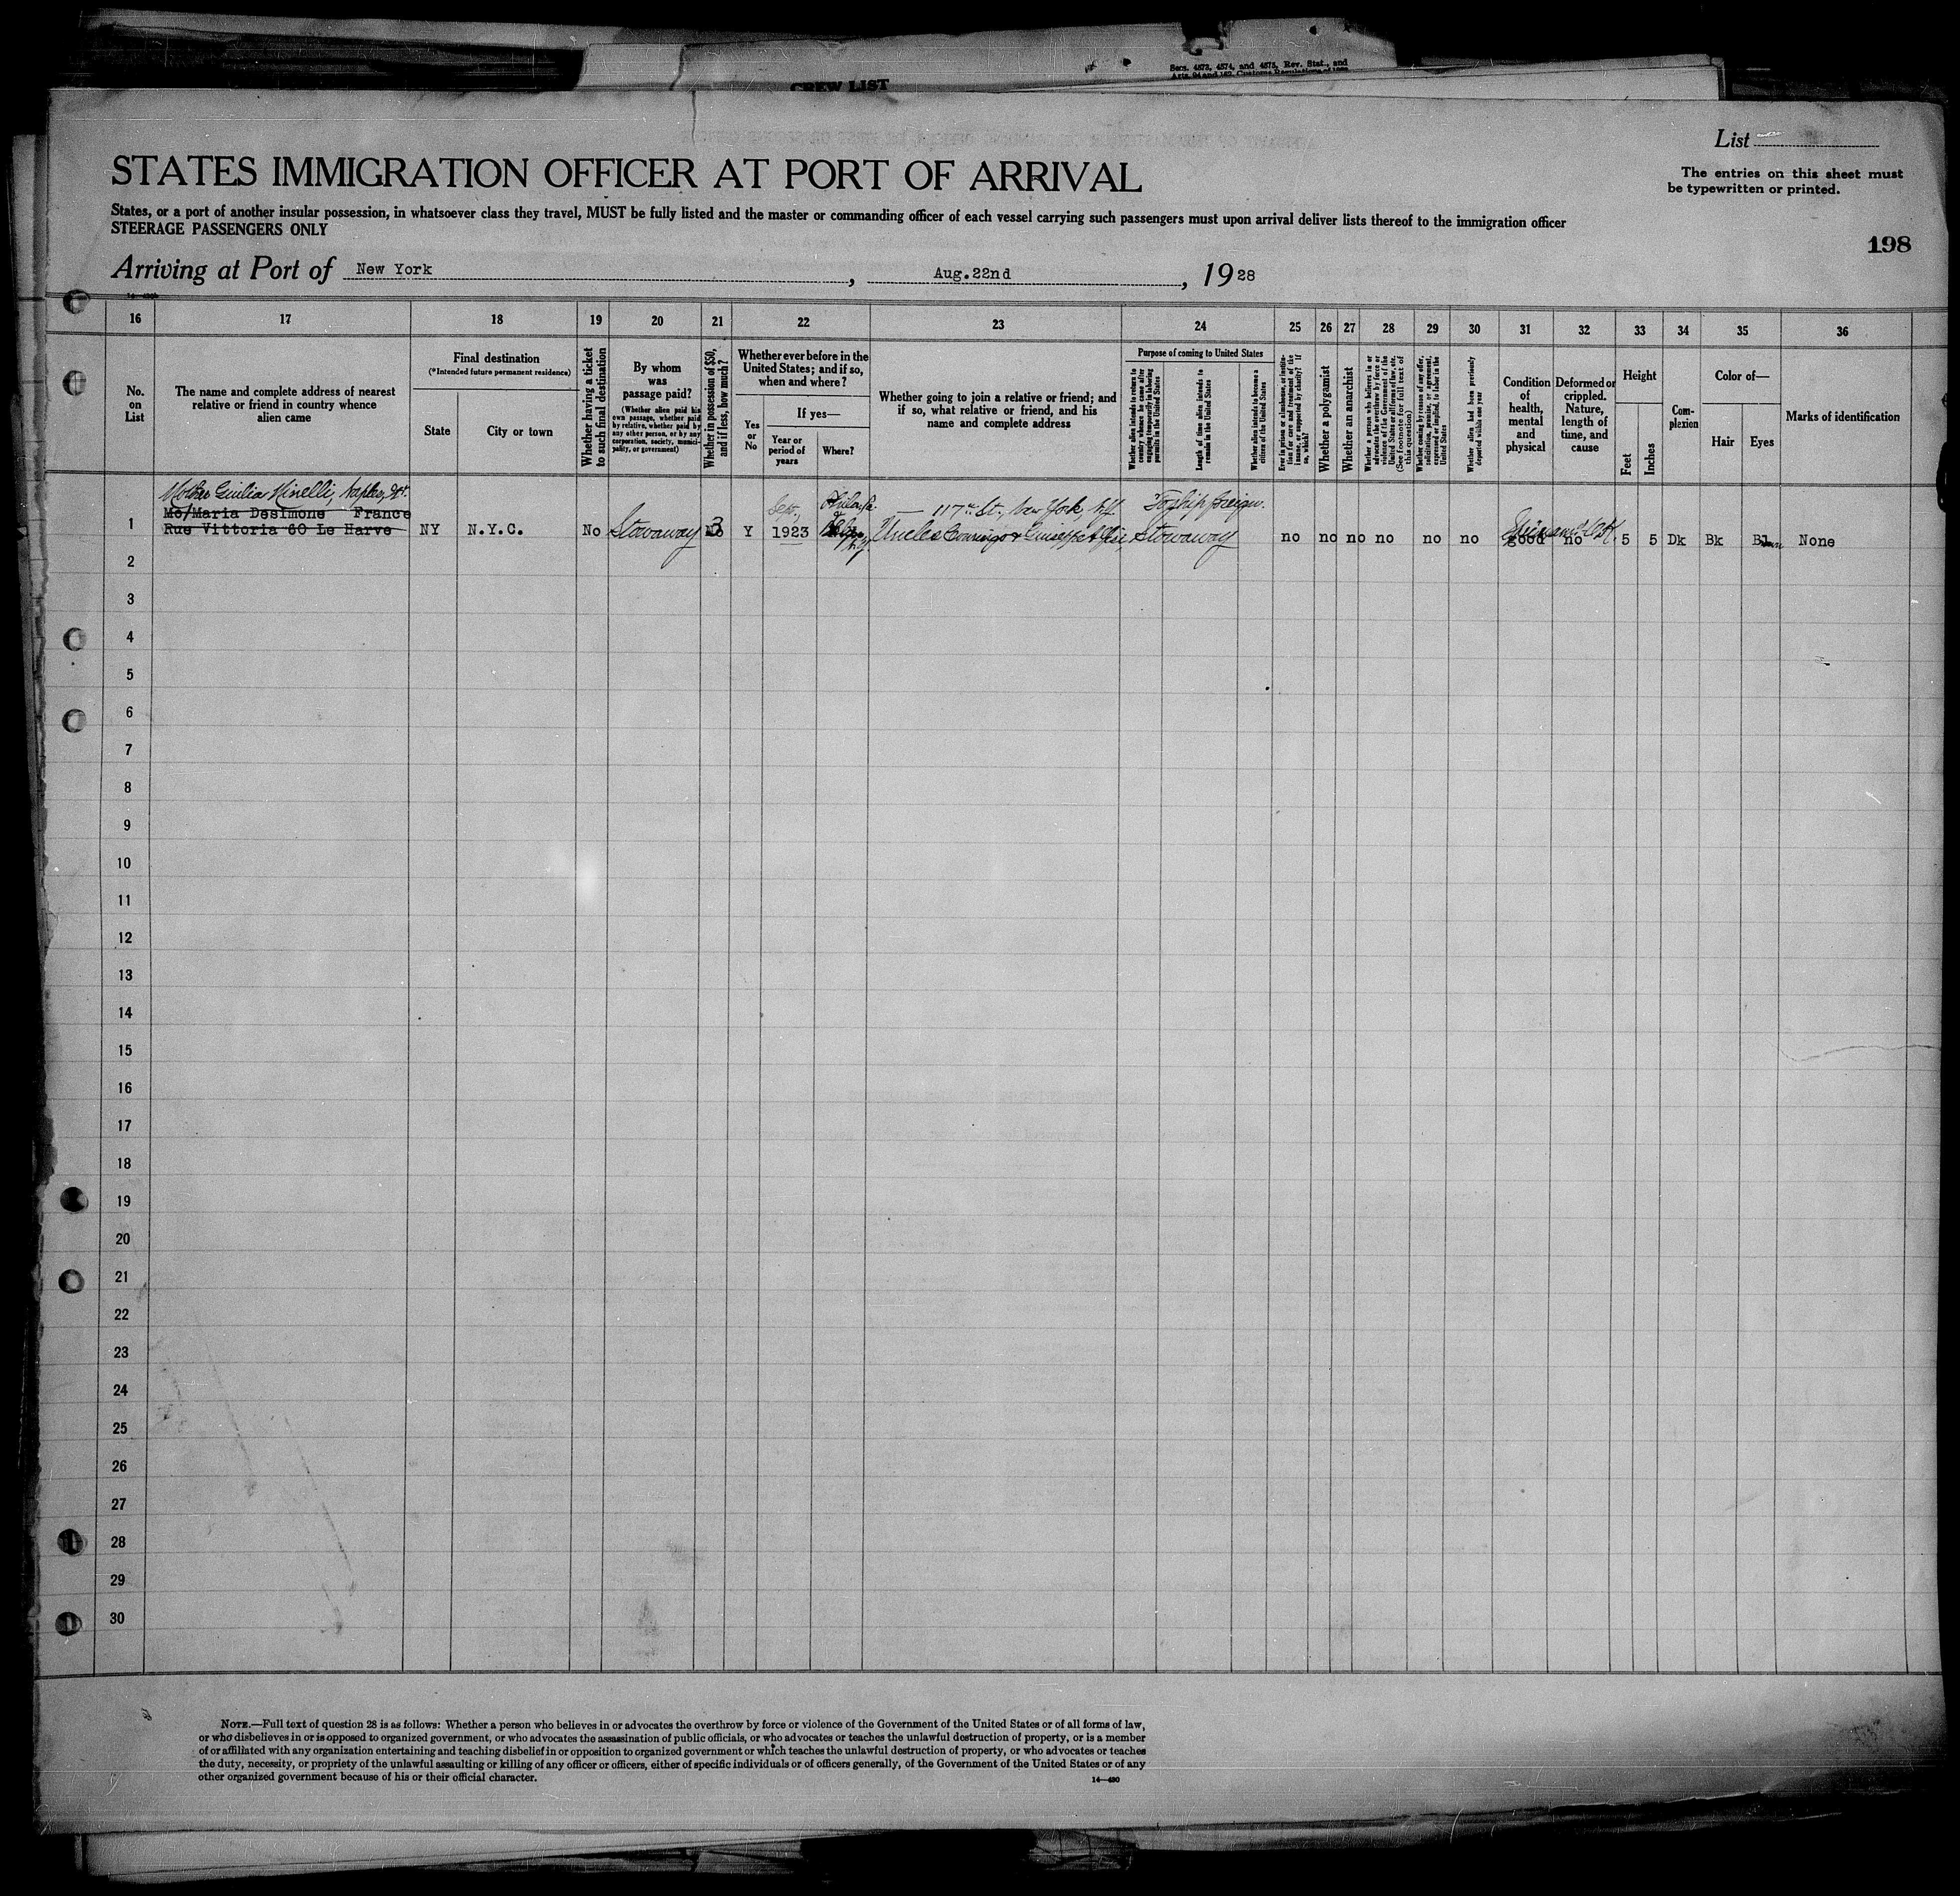 Secs. 4573, 4574, and 4575, Rev. Stat., and
Arts. 94 and 162, Customs Regulations of
CREW LIST
List
STATES IMMIGRATION OFFICER AT PORT OF ARRIVAL
The entries on this sheet must
be typewritten or printed.
States, or a port of another insular possession, in whatsoever class they travel, MUST be fully listed and the master or commanding officer of each vessel carrying such passengers must upon arrival deliver lists thereof to the immigration officer
STEERAGE PASSENGERS ONLY
198
Arriving at Port of New York, Aug. 22nd, 1928
16 17 18 19 20 21 22 23 24 25 26 27 28 29 30 31 32 33 34 35 36
No. on List
The name and complete address of nearest relative or friend in country whence alien came
Final destination
(*Intended future permanent residence)
State
City or town
Whether having a ticket to such final destination
By whom was passage paid?
(Whether alien paid his own passage, whether paid by relative, whether paid by any other person, or by any corporation, society, municipality, or government)
Whether in possession of $50, and if less, how much?
Whether ever before in the United States; and if so, when and where?
Yes or No
If yes—
Year or period of years
Where?
Whether going to join a relative or friend; and if so, what relative or friend, and his name and complete address
Purpose of coming to United States
Whether alien intends to return to country whence he came after engaging temporarily in laboring pursuits in the United States
Length of time alien intends to remain in the United States
Whether alien intends to become a citizen of the United States
Ever in prison or almshouse, or institution for care and treatment of the insane, or supported by charity? If so, which?
Whether a polygamist
Whether an anarchist
Whether a person who believes in or advocates the overthrow by force or violence of the Government of the United States or all forms of law, etc. (See footnote for full text of this question)
Whether coming by reason of any offer, solicitation, promise, or agreement, expressed or implied, to labor in the United States
Whether alien had been previously deported within one year
Condition of health, mental and physical
Deformed or crippled. Nature, length of time, and cause
Height
Feet
Inches
Complexion
Color of—
Hair
Eyes
Marks of identification
Mother Giulia Minelli, Naples, It.
Mo/Maria Desimone France
Rue Vittoria 60 Le Harve
1 NY N.Y.C. No Stowaway 3 Y 1923
— 117th St., New York, N.Y.
Uncles
To ship foreign.
Stowaway
no no no no no no good no 5 5 Dk Bk None
2
3
4
5
6
7
8
9
10
11
12
13
14
15
16
17
18
19
20
21
22
23
24
25
26
27
28
29
30
NOTE.—Full text of question 28 is as follows: Whether a person who believes in or advocates the overthrow by force or violence of the Government of the United States or of all forms of law,
or who disbelieves in or is opposed to organized government, or who advocates the assassination of public officials, or who advocates or teaches the unlawful destruction of property, or is a member
of or affiliated with any organization entertaining and teaching disbelief in or opposition to organized government or which teaches the unlawful destruction of property, or who advocates or teaches
the duty, necessity, or propriety of the unlawful assaulting or killing of any officer or officers, either of specific individuals or of officers generally, of the Government of the United States or of any
other organized government because of his or their official character.
14—430